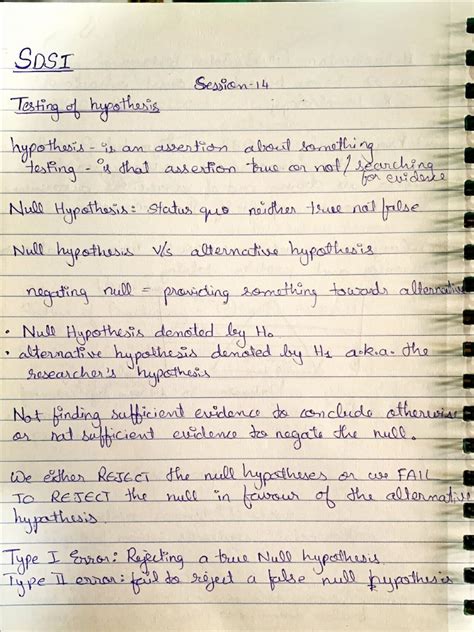 SDSI
Session-14
Testing of hypothesis
hypothesis - is an assertion about something
testing - is that assertion true or not/searching
for evidence
Null Hypothesis: Status quo neither true not false
Null hypothesis V/s alternative hypothesis
negating null = providing something towards alternative
• Null Hypothesis denoted by H₀
• alternative hypothesis denoted by H₁ a.k.a. the
researcher's hypothesis
Not finding sufficient evidence to conclude otherwise
or not sufficient evidence to negate the null.
We either REJECT the null hypotheses or we FAIL
TO REJECT the null in favour of the alternative
hypothesis.
Type I Error: Rejecting a true Null hypothesis
Type II error: fail to reject a false null hypothesis